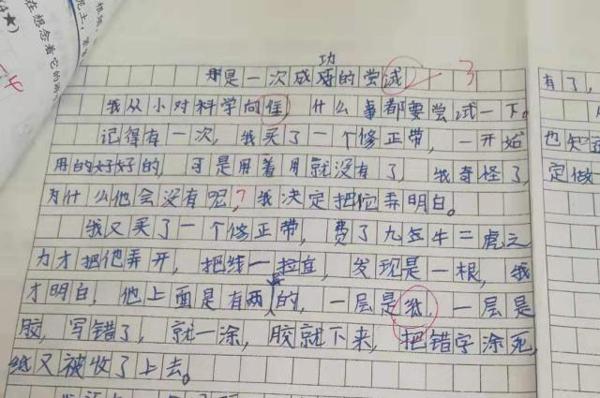 功
那是一次成功的尝试 3
我从小对科学向往 什么事都要尝试一下。
记得有一次，我买了一个修正带，一开始
用的好好的，可是用着用就没有了，我奇怪了，
为什么他会没有呢？我决定把它弄明白。
我又买了一个修正带，费了九五牛二虎之
力才把他弄开，把线一拉直，发现是一根，我
才明白，他上面是有两的，一层是纸，一层是
胶，写错了，就一涂，胶就下来，把错字涂死，
纸又被收了上去。
有了，
也知
定做
在想念着它的